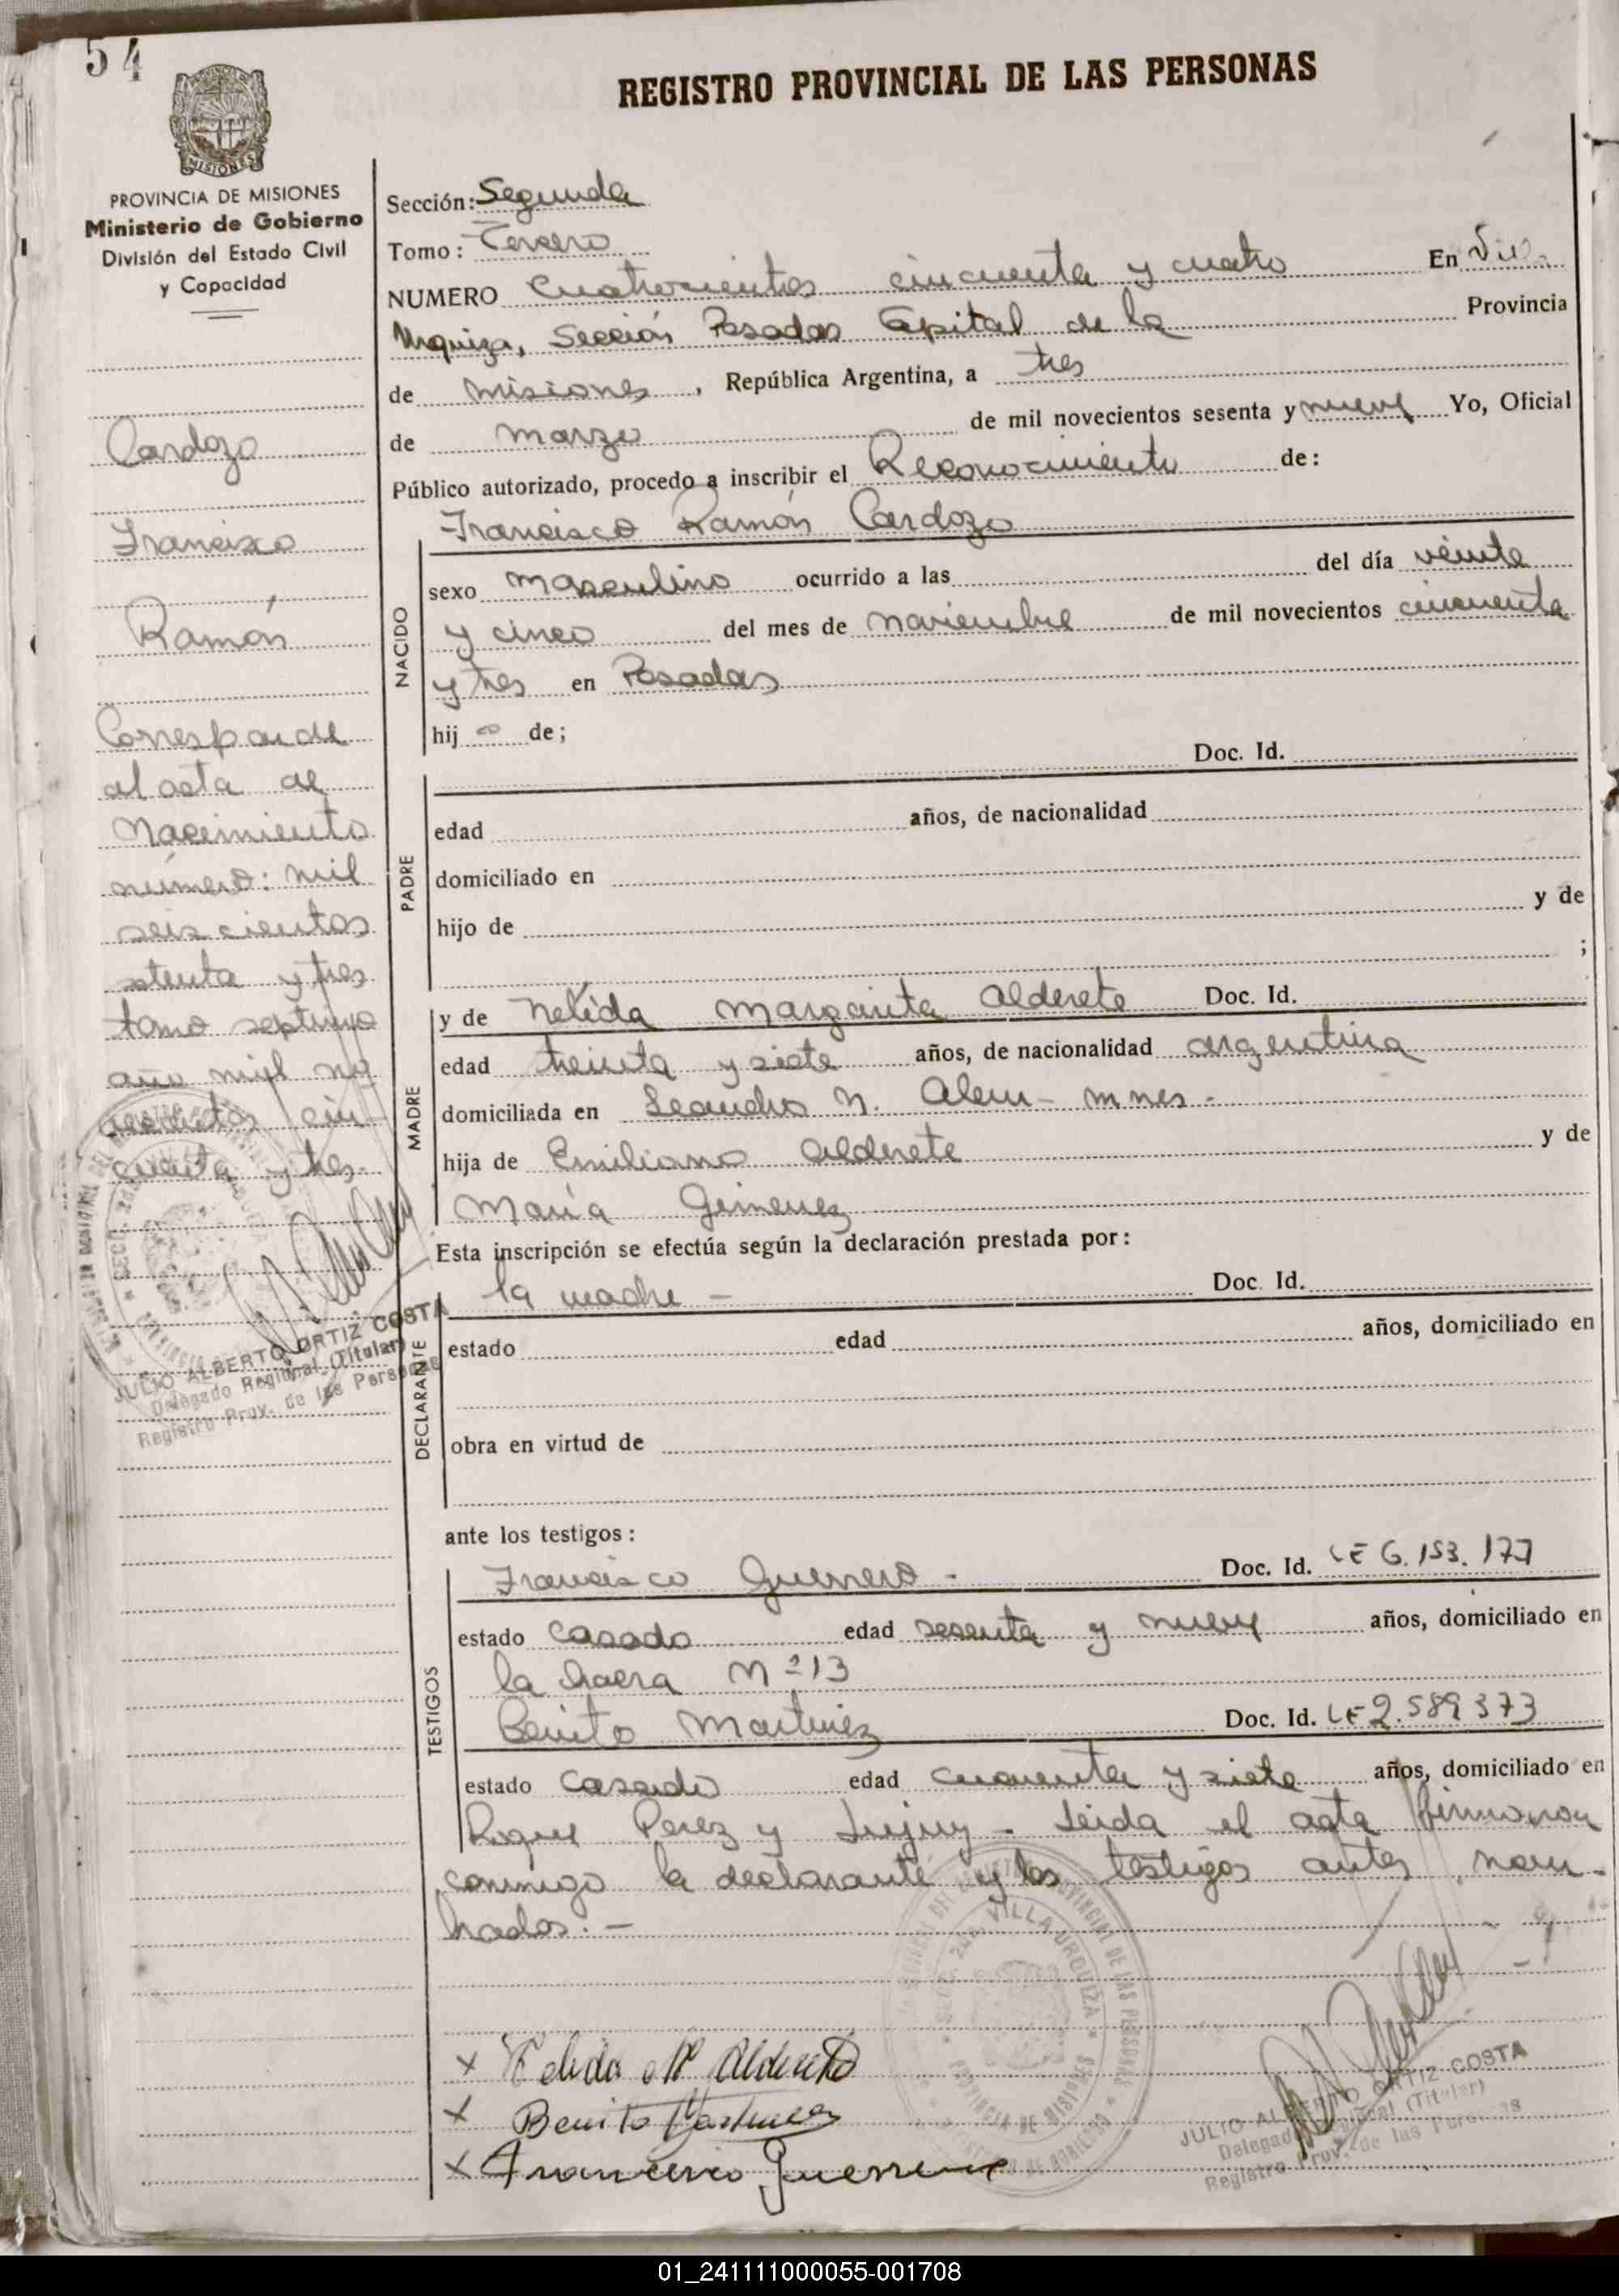 54
REGISTRO PROVINCIAL DE LAS PERSONAS
MISIONES
PROVINCIA DE MISIONES
Ministerio de Gobierno
División del Estado Civil
y Capacidad
Cardozo
Francisco
Ramón
Corresponde
al acta de
Nacimiento
número: mil
seiscientos
setenta y tres
tomo septimo
año mil no
vecientos cin-
cuenta y tres.
JULIO ALBERTO ORTIZ COSTA
Delegado Regional (Titular)
Registro Prov. de las Personas
Sección: Segunda
Tomo: Tercero
NUMERO Cuatrocientos cincuenta y cuatro En Villa
Urquiza, Sección Posadas Capital de la Provincia
de Misiones, República Argentina, a tres
de marzo de mil novecientos sesenta y nueve Yo, Oficial
Público autorizado, procedo a inscribir el Reconocimiento de:
Francisco Ramón Cardozo
NACIDO
sexo masculino ocurrido a las del día veinte
y cinco del mes de noviembre de mil novecientos cincuenta
y tres en Posadas
hij o de;
PADRE
Doc. Id.
edad años, de nacionalidad
domiciliado en
hijo de y de
;
MADRE
y de Nélida Margarita Alderete Doc. Id.
edad treinta y siete años, de nacionalidad argentina
domiciliada en Leandro N. Alem - mnes -
hija de Emiliano Alderete y de
María Gimenez
Esta inscripción se efectúa según la declaración prestada por:
DECLARANTE
la madre - Doc. Id.
estado edad años, domiciliado en
obra en virtud de
ante los testigos:
TESTIGOS
Francisco Guerrero - Doc. Id. LE 6.153.177
estado casado edad sesenta y nueve años, domiciliado en
la chacra Nº 13
Benito Martinez Doc. Id. LE 2.589373
estado casado edad cuarenta y siete años, domiciliado en
Roque Perez y Jujuy - Leida el acta firmaron
conmigo la declarante y los testigos antes nom-
brados. -
SECC. 2da. VILLA URQUIZA
PROVINCIA DE MISIONES
x Nelida M Alderete
x Benito Martinez
x Francisco Guerrero
JULIO ALBERTO ORTIZ COSTA
Delegado Regional (Titular)
Registro Prov. de las Personas
01_241111000055-001708